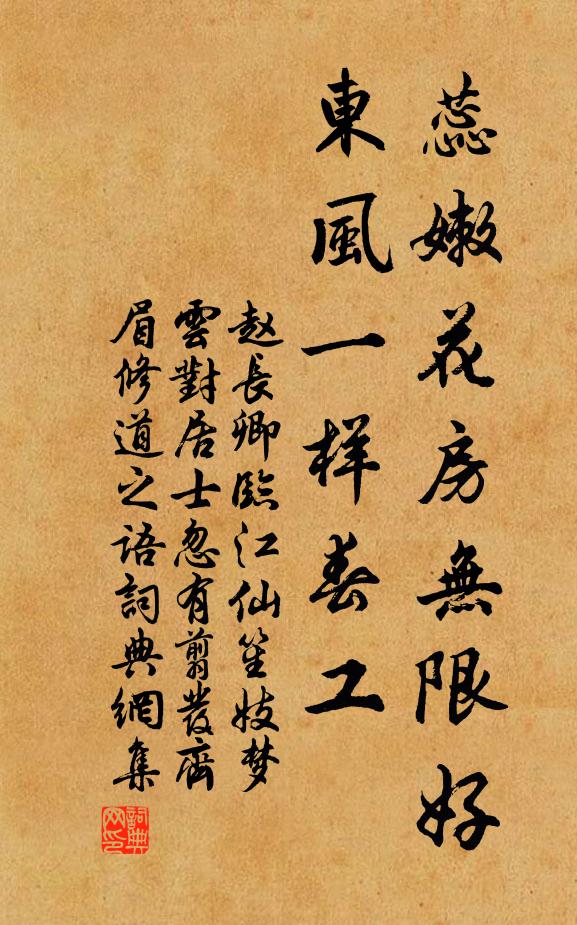 蕊嫩花房無限好
東風一样春工
赵長卿臨江仙笙妓梦
雲對居士忽有翦發齊
眉修道之語詞典網集
詞典网印